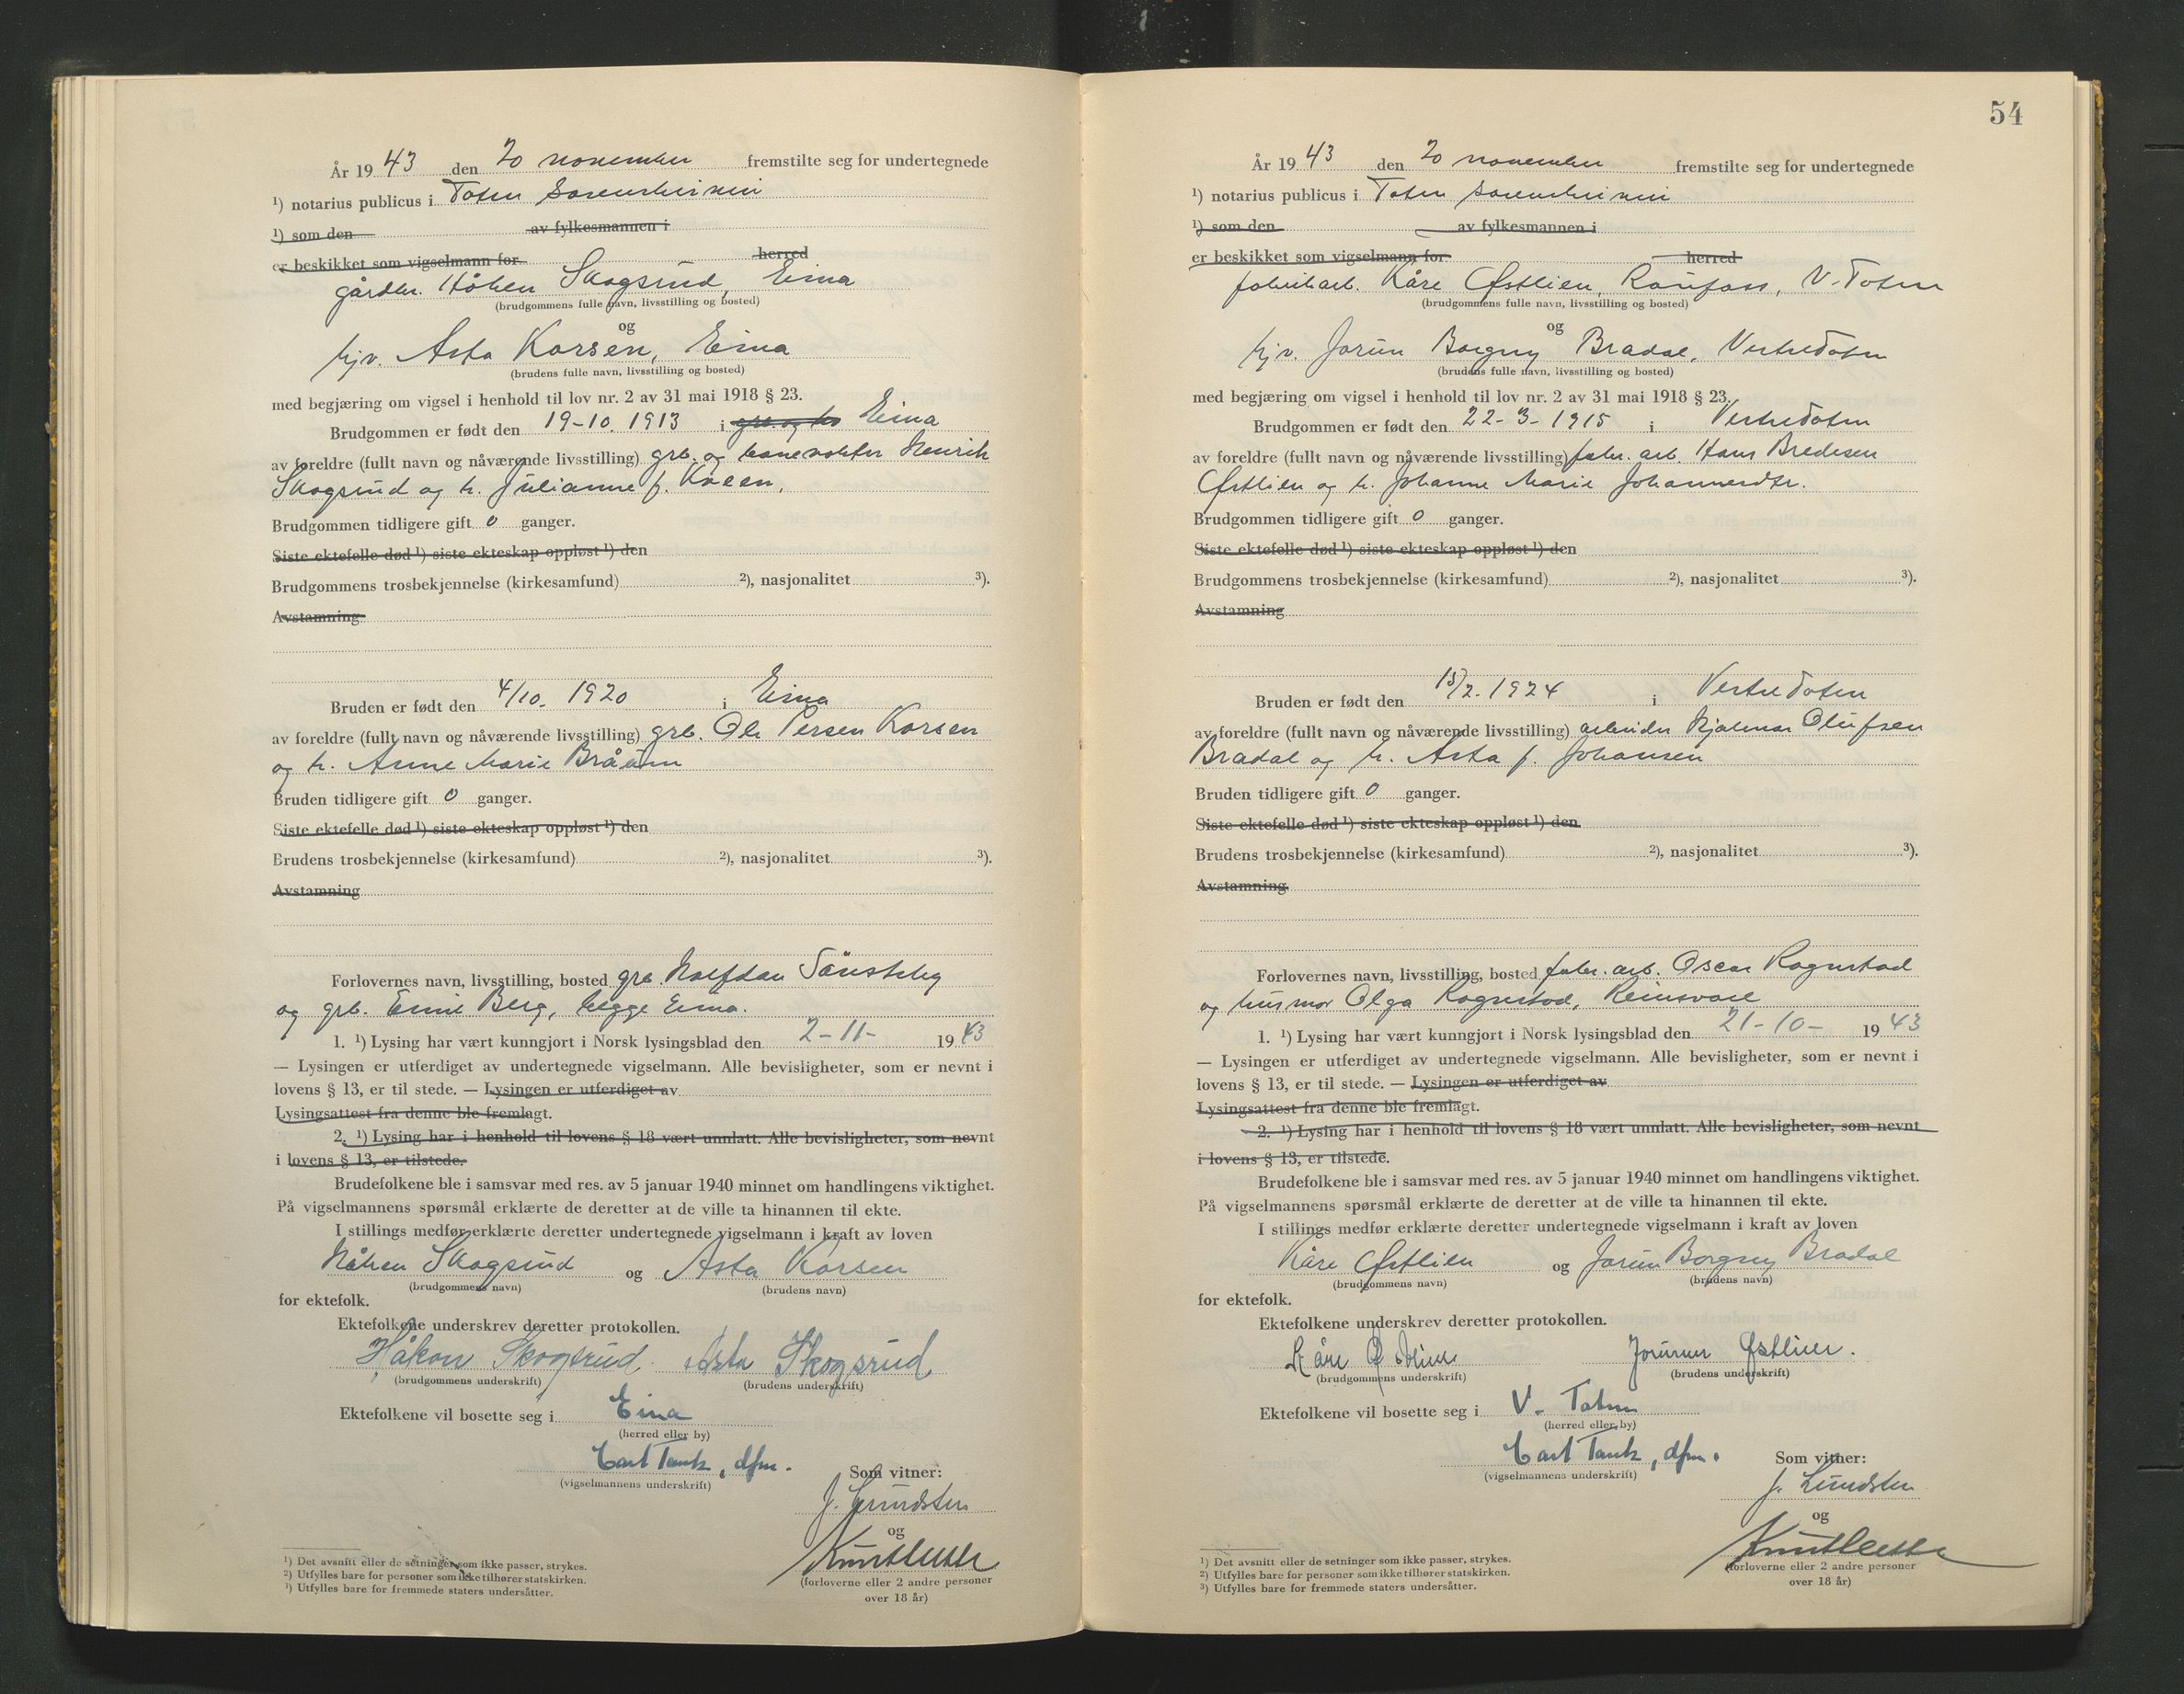 År 19 43 den 20 november fremstilte seg for undertegnede
¹) notarius publicus i Toten sorenskriveri
¹) som den av fylkesmannen i
er beskikket som vigselmann for herred
gårdbr. Håken Skogsrud, Eina
(brudgommens fulle navn, livsstilling og bosted)
og
hjv. Asta Korsen, Eina
(brudens fulle navn, livsstilling og bosted)
med begjæring om vigsel i henhold til lov nr. 2 av 31 mai 1918 § 23.
Brudgommen er født den 19-10. 1913 i Eina
av foreldre (fullt navn og nåværende livsstilling) grb. og banevokter Henrik
Skogsrud og h. Julianne f.
Brudgommen tidligere gift 0 ganger.
Siste ektefelle død ¹) siste ekteskap oppløst ¹) den
Brudgommens trosbekjennelse (kirkesamfund) ²), nasjonalitet ³).
Avstamning
Bruden er født den 4/10. 1920 i Eina
av foreldre (fullt navn og nåværende livsstilling) grb. Ole Persen Korsen
og h. Anne Marie Bråten
Bruden tidligere gift 0 ganger.
Siste ektefelle død ¹) siste ekteskap oppløst ¹) den
Brudens trosbekjennelse (kirkesamfund) ²), nasjonalitet ³).
Avstamning
Forlovernes navn, livsstilling, bosted grb. Halfdan Sønsteby
og grb. Emil Berg, begge Eina.
1. ¹) Lysing har vært kunngjort i Norsk lysingsblad den 2-11- 19 43
— Lysingen er utferdiget av undertegnede vigselmann. Alle bevisligheter, som er nevnt i
lovens § 13, er til stede. — Lysingen er utferdiget av
Lysingsattest fra denne ble fremlagt.
2. ¹) Lysing har i henhold til lovens § 18 vært unnlatt. Alle bevisligheter, som nevnt
i lovens § 13, er tilstede.
Brudefolkene ble i samsvar med res. av 5 januar 1940 minnet om handlingens viktighet.
På vigselmannens spørsmål erklærte de deretter at de ville ta hinannen til ekte.
I stillings medfør erklærte deretter undertegnede vigselmann i kraft av loven
Håken Skogsrud og Asta Korsen
(brudgommens navn) (brudens navn)
for ektefolk.
Ektefolkene underskrev deretter protokollen.
Håkon Skogsrud. Asta Skogsrud
(brudgommens underskrift) (brudens underskrift)
Ektefolkene vil bosette seg i Eina
(herred eller by)
Carl Tank, dfm.
(vigselmannens underskrift)
Som vitner:
J. Lundsten
og
(forloverne eller 2 andre personer
over 18 år)
¹) Det avsnitt eller de setninger som ikke passer, strykes.
²) Utfylles bare for personer som ikke tilhører statskirken.
³) Utfylles bare for fremmede staters undersåtter.
54
År 19 43 den 20 november fremstilte seg for undertegnede
¹) notarius publicus i Toten sorenskriveri
¹) som den av fylkesmannen i
er beskikket som vigselmann for herred
fabrikarb. Kåre Østlien, Raufoss, V-Toten
(brudgommens fulle navn, livsstilling og bosted)
og
hjv. Jorun Borgny Bradal, Vestre Toten
(brudens fulle navn, livsstilling og bosted)
med begjæring om vigsel i henhold til lov nr. 2 av 31 mai 1918 § 23.
Brudgommen er født den 22-3-1915 i Vestre Toten
av foreldre (fullt navn og nåværende livsstilling) fabr. arb. Hans Bredesen
Østlien og h. Johanne Marie Johannesdtr.
Brudgommen tidligere gift 0 ganger.
Siste ektefelle død ¹) siste ekteskap oppløst ¹) den
Brudgommens trosbekjennelse (kirkesamfund) ²), nasjonalitet ³).
Avstamning
Bruden er født den 15/2. 1924 i Vestre Toten
av foreldre (fullt navn og nåværende livsstilling) arbeider Hjalmar Olufsen
Bradal og h. Asta f. Johansen
Bruden tidligere gift 0 ganger.
Siste ektefelle død ¹) siste ekteskap oppløst ¹) den
Brudens trosbekjennelse (kirkesamfund) ²), nasjonalitet ³).
Avstamning
Forlovernes navn, livsstilling, bosted fabr. arb. Oscar Rognstad
og husmor Olga Rognstad, Reinsvoll
1. ¹) Lysing har vært kunngjort i Norsk lysingsblad den 21-10- 19 43
— Lysingen er utferdiget av undertegnede vigselmann. Alle bevisligheter, som er nevnt i
lovens § 13, er til stede. — Lysingen er utferdiget av
Lysingsattest fra denne ble fremlagt.
2. ¹) Lysing har i henhold til lovens § 18 vært unnlatt. Alle bevisligheter, som nevnt
i lovens § 13, er tilstede.
Brudefolkene ble i samsvar med res. av 5 januar 1940 minnet om handlingens viktighet.
På vigselmannens spørsmål erklærte de deretter at de ville ta hinannen til ekte.
I stillings medfør erklærte deretter undertegnede vigselmann i kraft av loven
Kåre Østlien og Jorun Borgny Bradal
(brudgommens navn) (brudens navn)
for ektefolk.
Ektefolkene underskrev deretter protokollen.
Kåre Østlien Jorunn Østlien.
(brudgommens underskrift) (brudens underskrift)
Ektefolkene vil bosette seg i V. Toten
(herred eller by)
Carl Tank, dfm.
(vigselmannens underskrift)
Som vitner:
J. Lundsten
og
(forloverne eller 2 andre personer
over 18 år)
¹) Det avsnitt eller de setninger som ikke passer, strykes.
²) Utfylles bare for personer som ikke tilhører statskirken.
³) Utfylles bare for fremmede staters undersåtter.